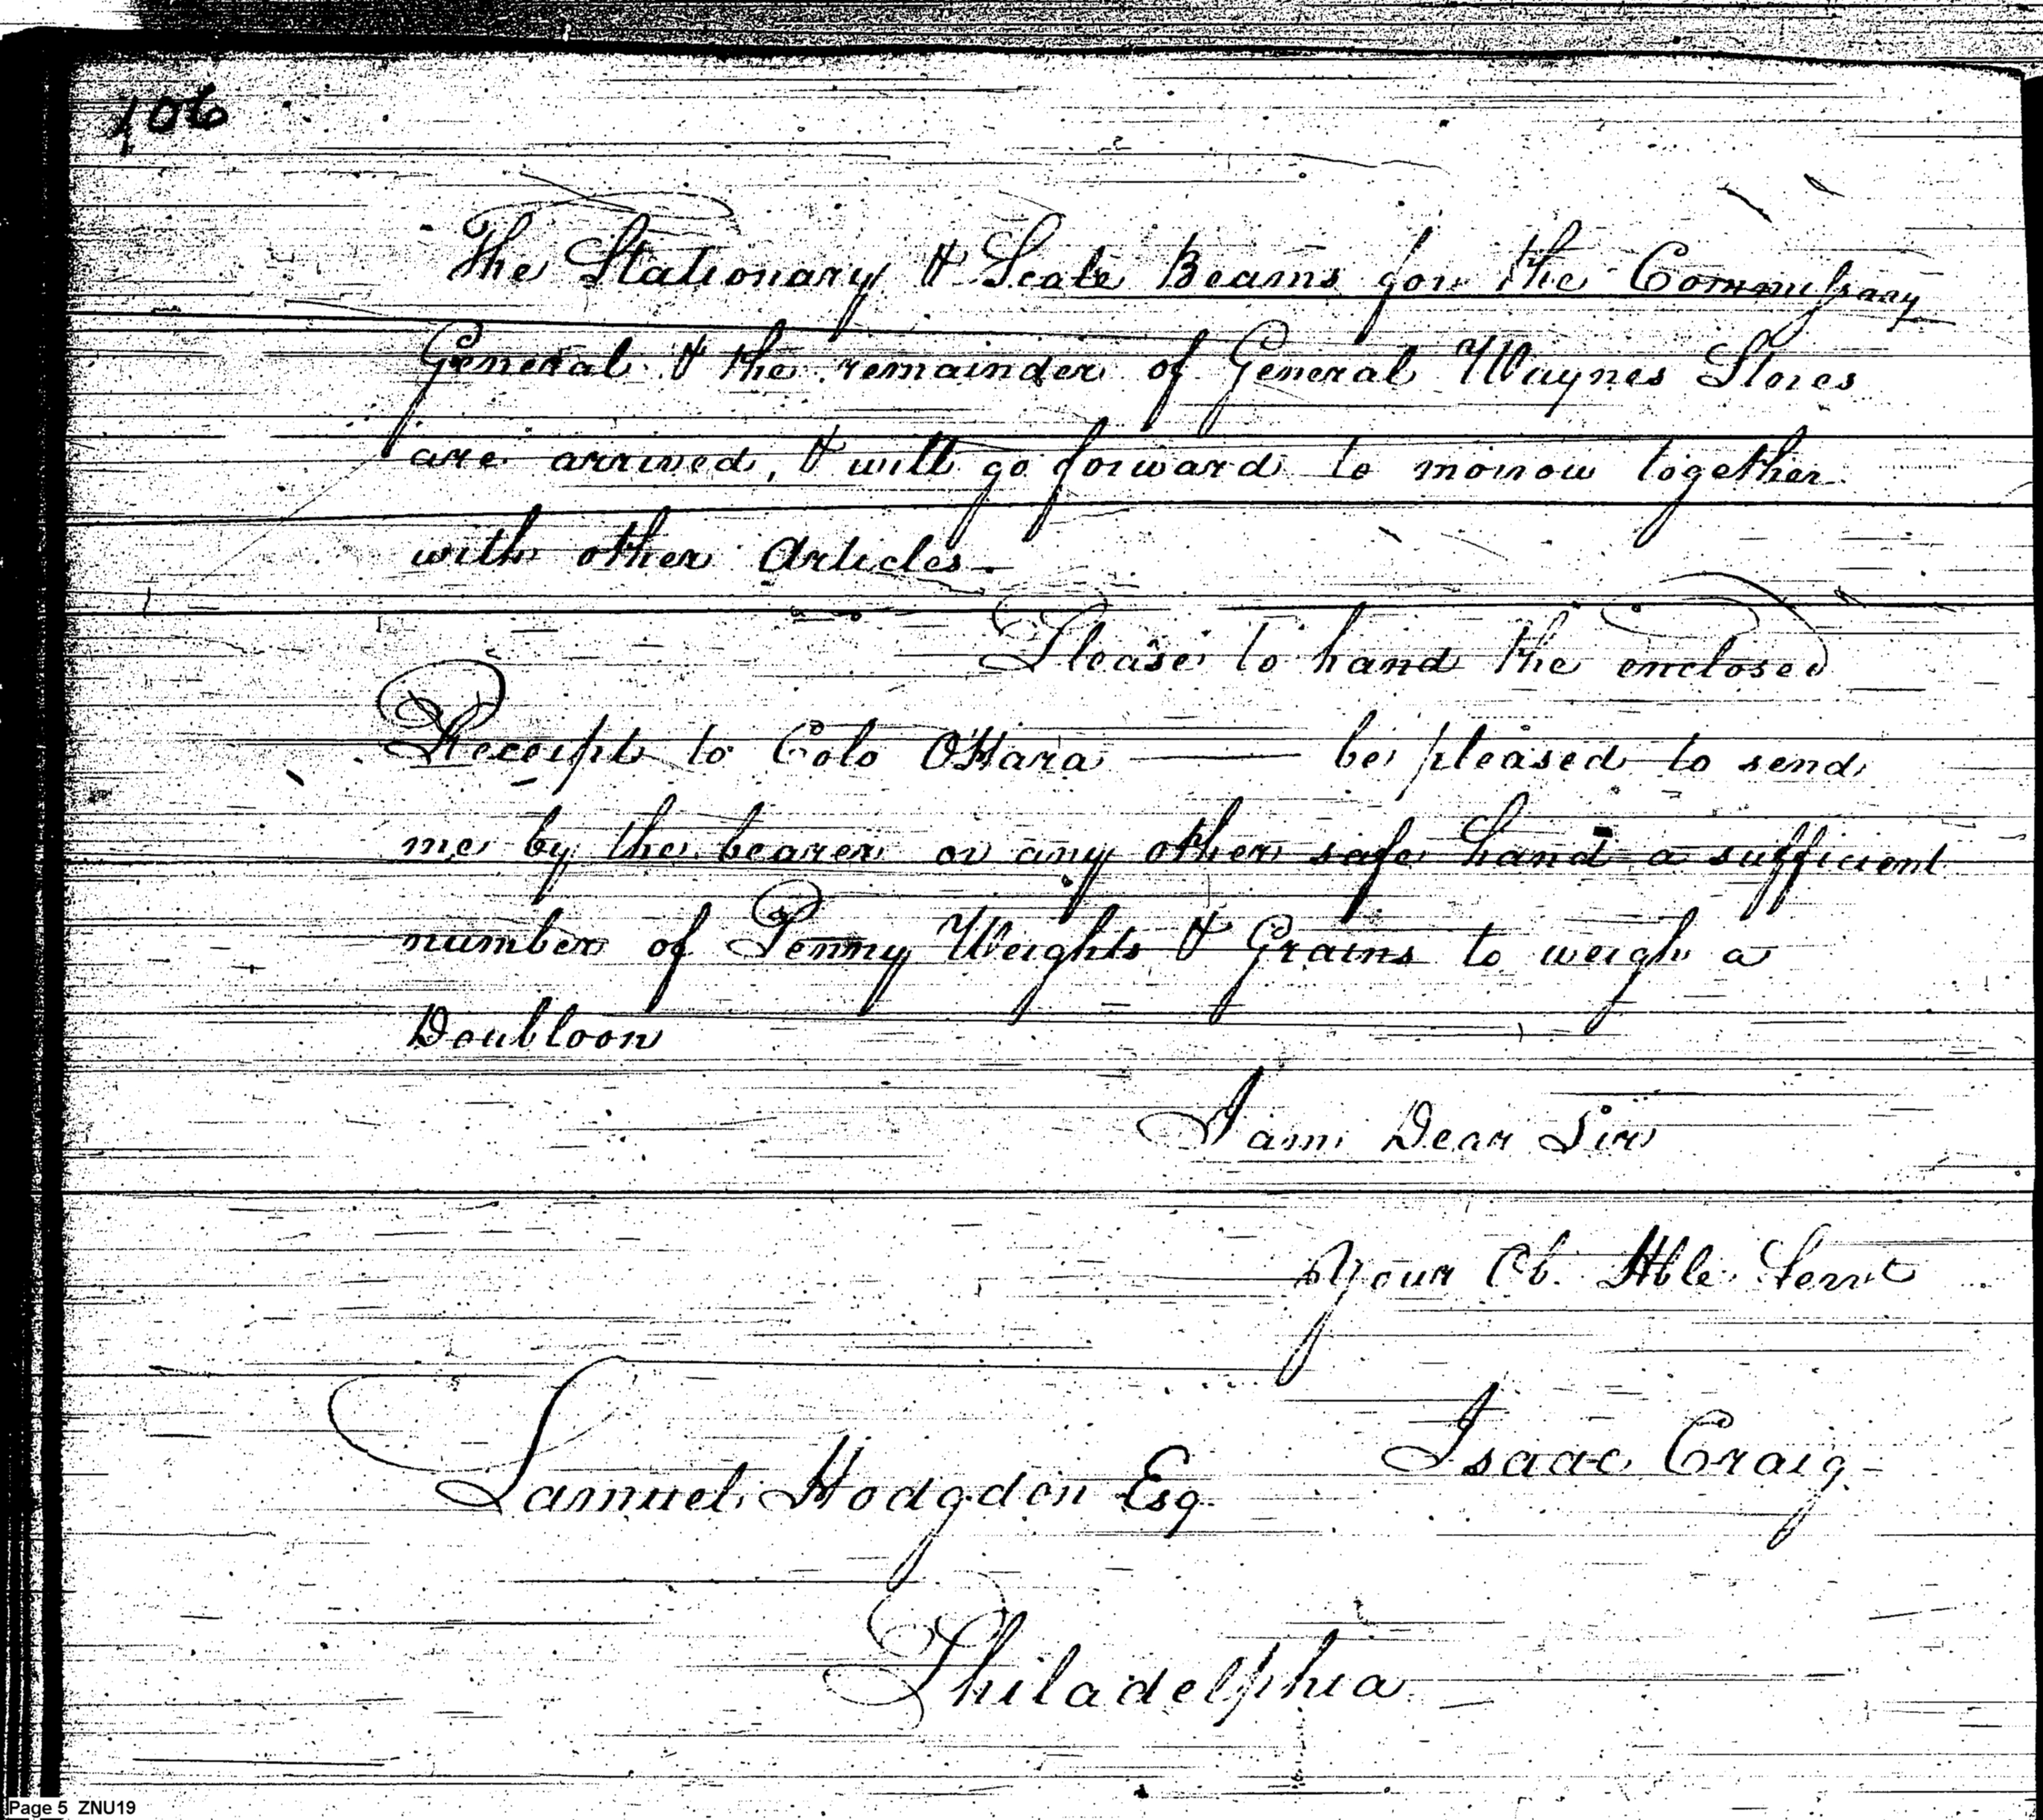 106
The Stationary & Scale Beams for the Commissary
General & the remainder of General Waynes Stores
are arrived, & will go forward to morrow together
with other Articles —
Please to hand the enclosed
Receipt to Colo OHara —— be pleased to send
me by the bearer or any other safe hand a sufficient
number of Penny Weights & Grains to weigh a
Doubloon
I am Dear Sir
Your Ob. Hble Servt
Isaac Craig
Samuel Hodgdon Esq
Philadelphia
Page 5 ZNU19